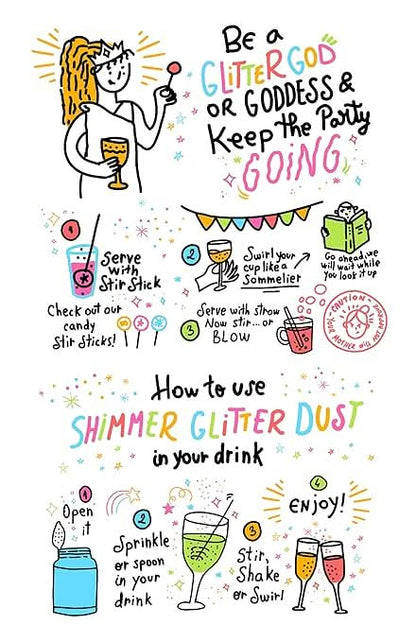 Be a
GLiTTER GOD
OR GODDESS &
Keep the Party
GOING
1
Serve
with
Stir Stick
Check out our
candy
Stir Sticks!
2
Swirl your
cup like a
Sommelier
Go ahead, we
will wait while
you look it up
3
Serve with straw
Now stir... or
BLOW
CAUTION
YOUR MOTHER WILL NOT
How to use
SHIMMER GLiTTER DUST
in your drink
1
Open
it
2
Sprinkle
or spoon
in your
drink
3
Stir,
Shake
or Swirl
4
ENJOY!